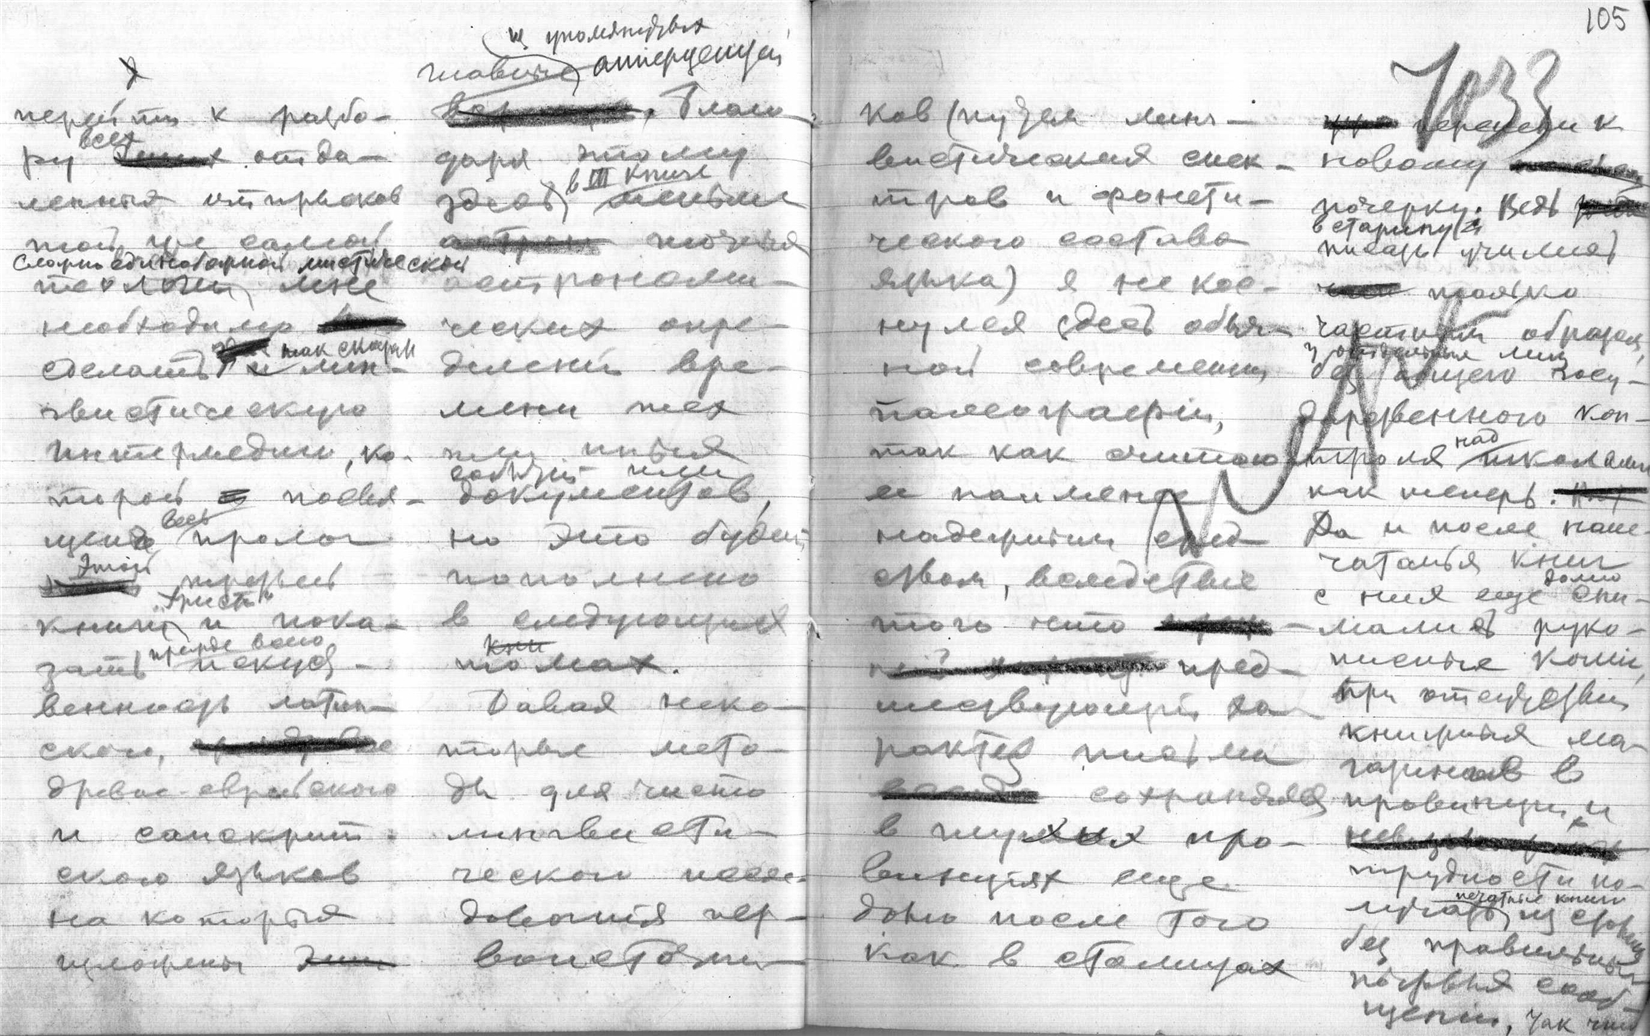 105
1033
перейти к разбо-
ру всех отда-
ленных отпрысков
той же самой
мне
необходимо
сделать так сказать лин-
гвистическую
интермедию, ко-
торой посвя-
щен весь пролог
этой третьей
книги и пока-
зать прежде всего искус-
венность латин-
ского,
древне-еврейского
и санскрит-
ского языков
на которых
изложены
главные
. Благо-
даря этому
здесь в III книге
астрономи-
ческих опре-
делений вре-
мени тех
или иных
событий или
документов,
но это будет
пополнено
в следующих
томах.
Давая неко-
торые мето-
ды для чисто
лингвисти-
ческого иссле-
дования пер-
воисточни-
ков (путем линг-
вистических спек-
тров и фонети-
ческого состава
языка) я не кос-
нулся здесь обыч-
ной современной
палеографии,
так как считаю
ее наименее
надежным сред-
ством, вследствие
того что
пред-
шествующий ха-
рактер письма
сохранялся
в глухих про-
винциях еще
долго после того
как в столицах
перешли к
новому
почерку. Ведь
в старину
писать учились
только
частным образом,
у отдельных лиц
без общего госу-
дарственного кон-
троля над школами
как теперь.
Да и после напе-
чатанья книг
с них еще долго сни-
мались руко-
писные копии,
при отсутствии
книжных ма-
газинов в
провинции и
трудности по-
лучать печатные книги из столиц
без правильных
почтовых сооб-
щений, так что